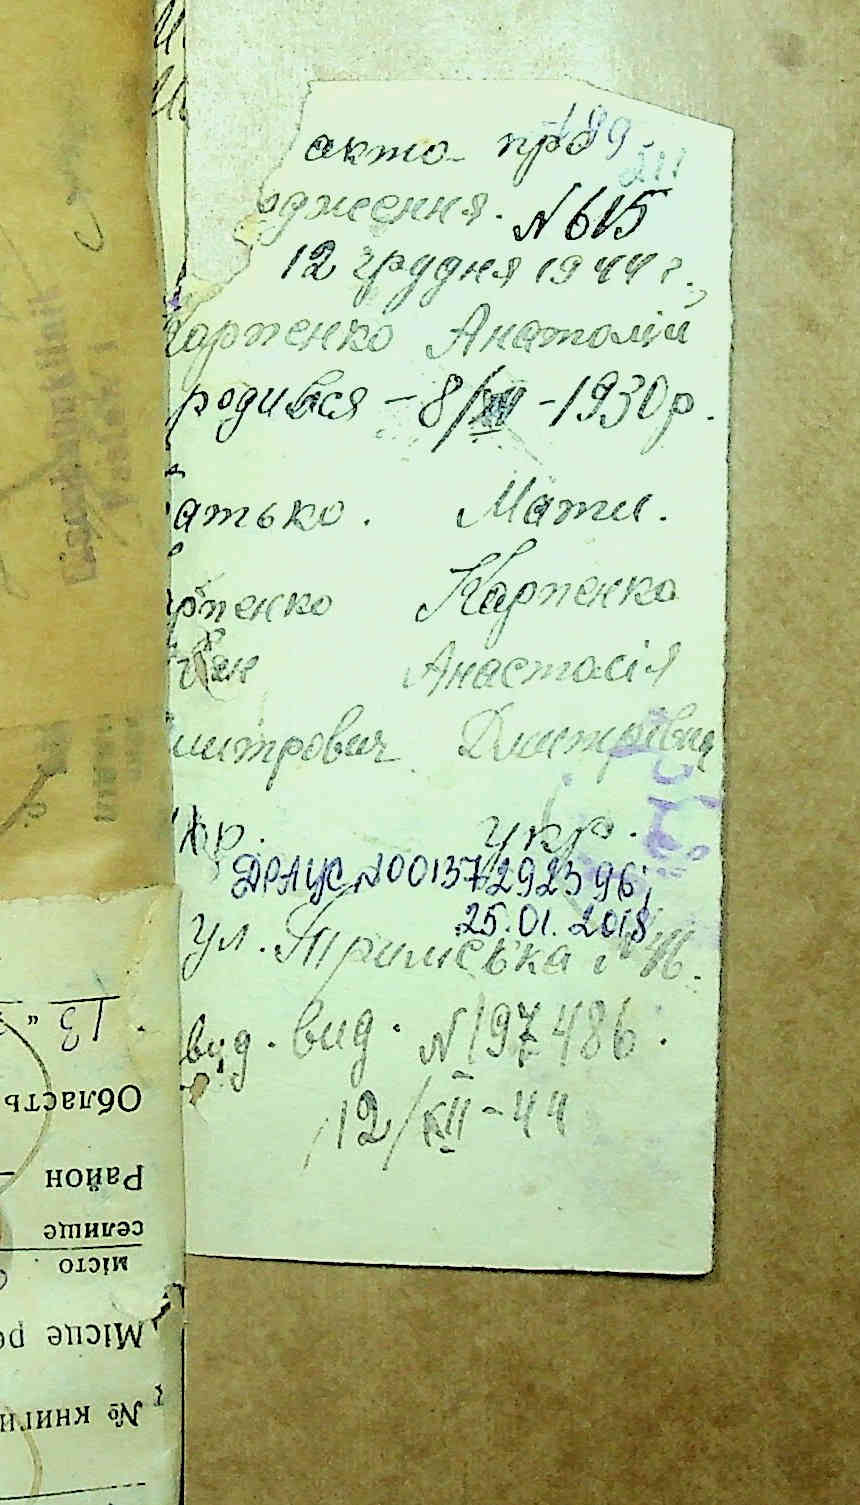 акто про 189
одження. N 615
12 грудня 1944 г.,
Карпенко Анатолій
родився - 8/XII - 1930 р.
атько. Мати.
рпенко Карпенко
Анастасія
митрович Дмитрівна
укр. укр.
ДРАЦС N 00137292396;
25.01.2018
ул.
вид. вид. N 197486.
12/XII - 44
13 "
Область
Район
селище
місто
Місце ро
№ книги